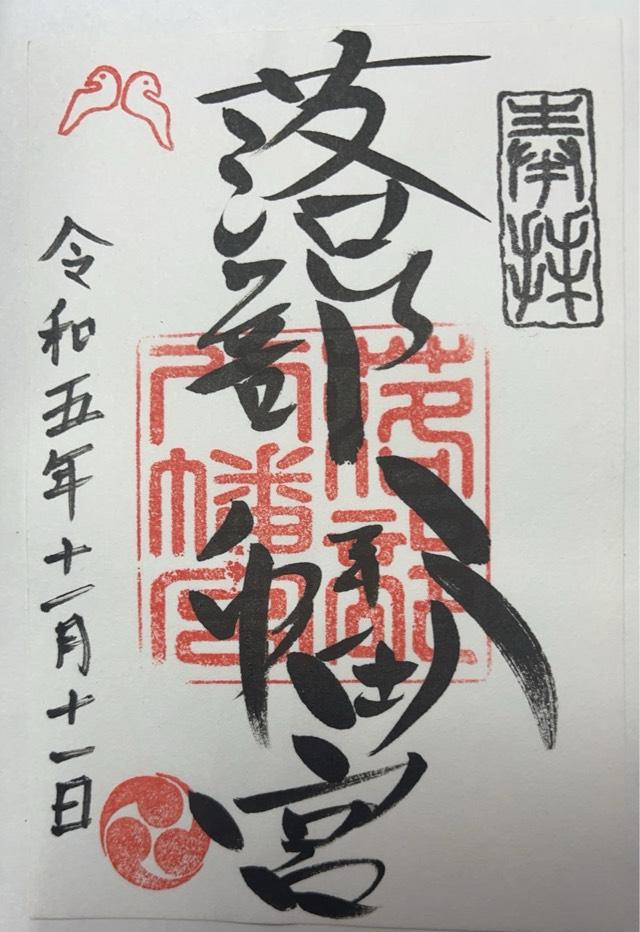 奉拝
落部八幡宮
落部八幡宮
令和五年十一月十一日